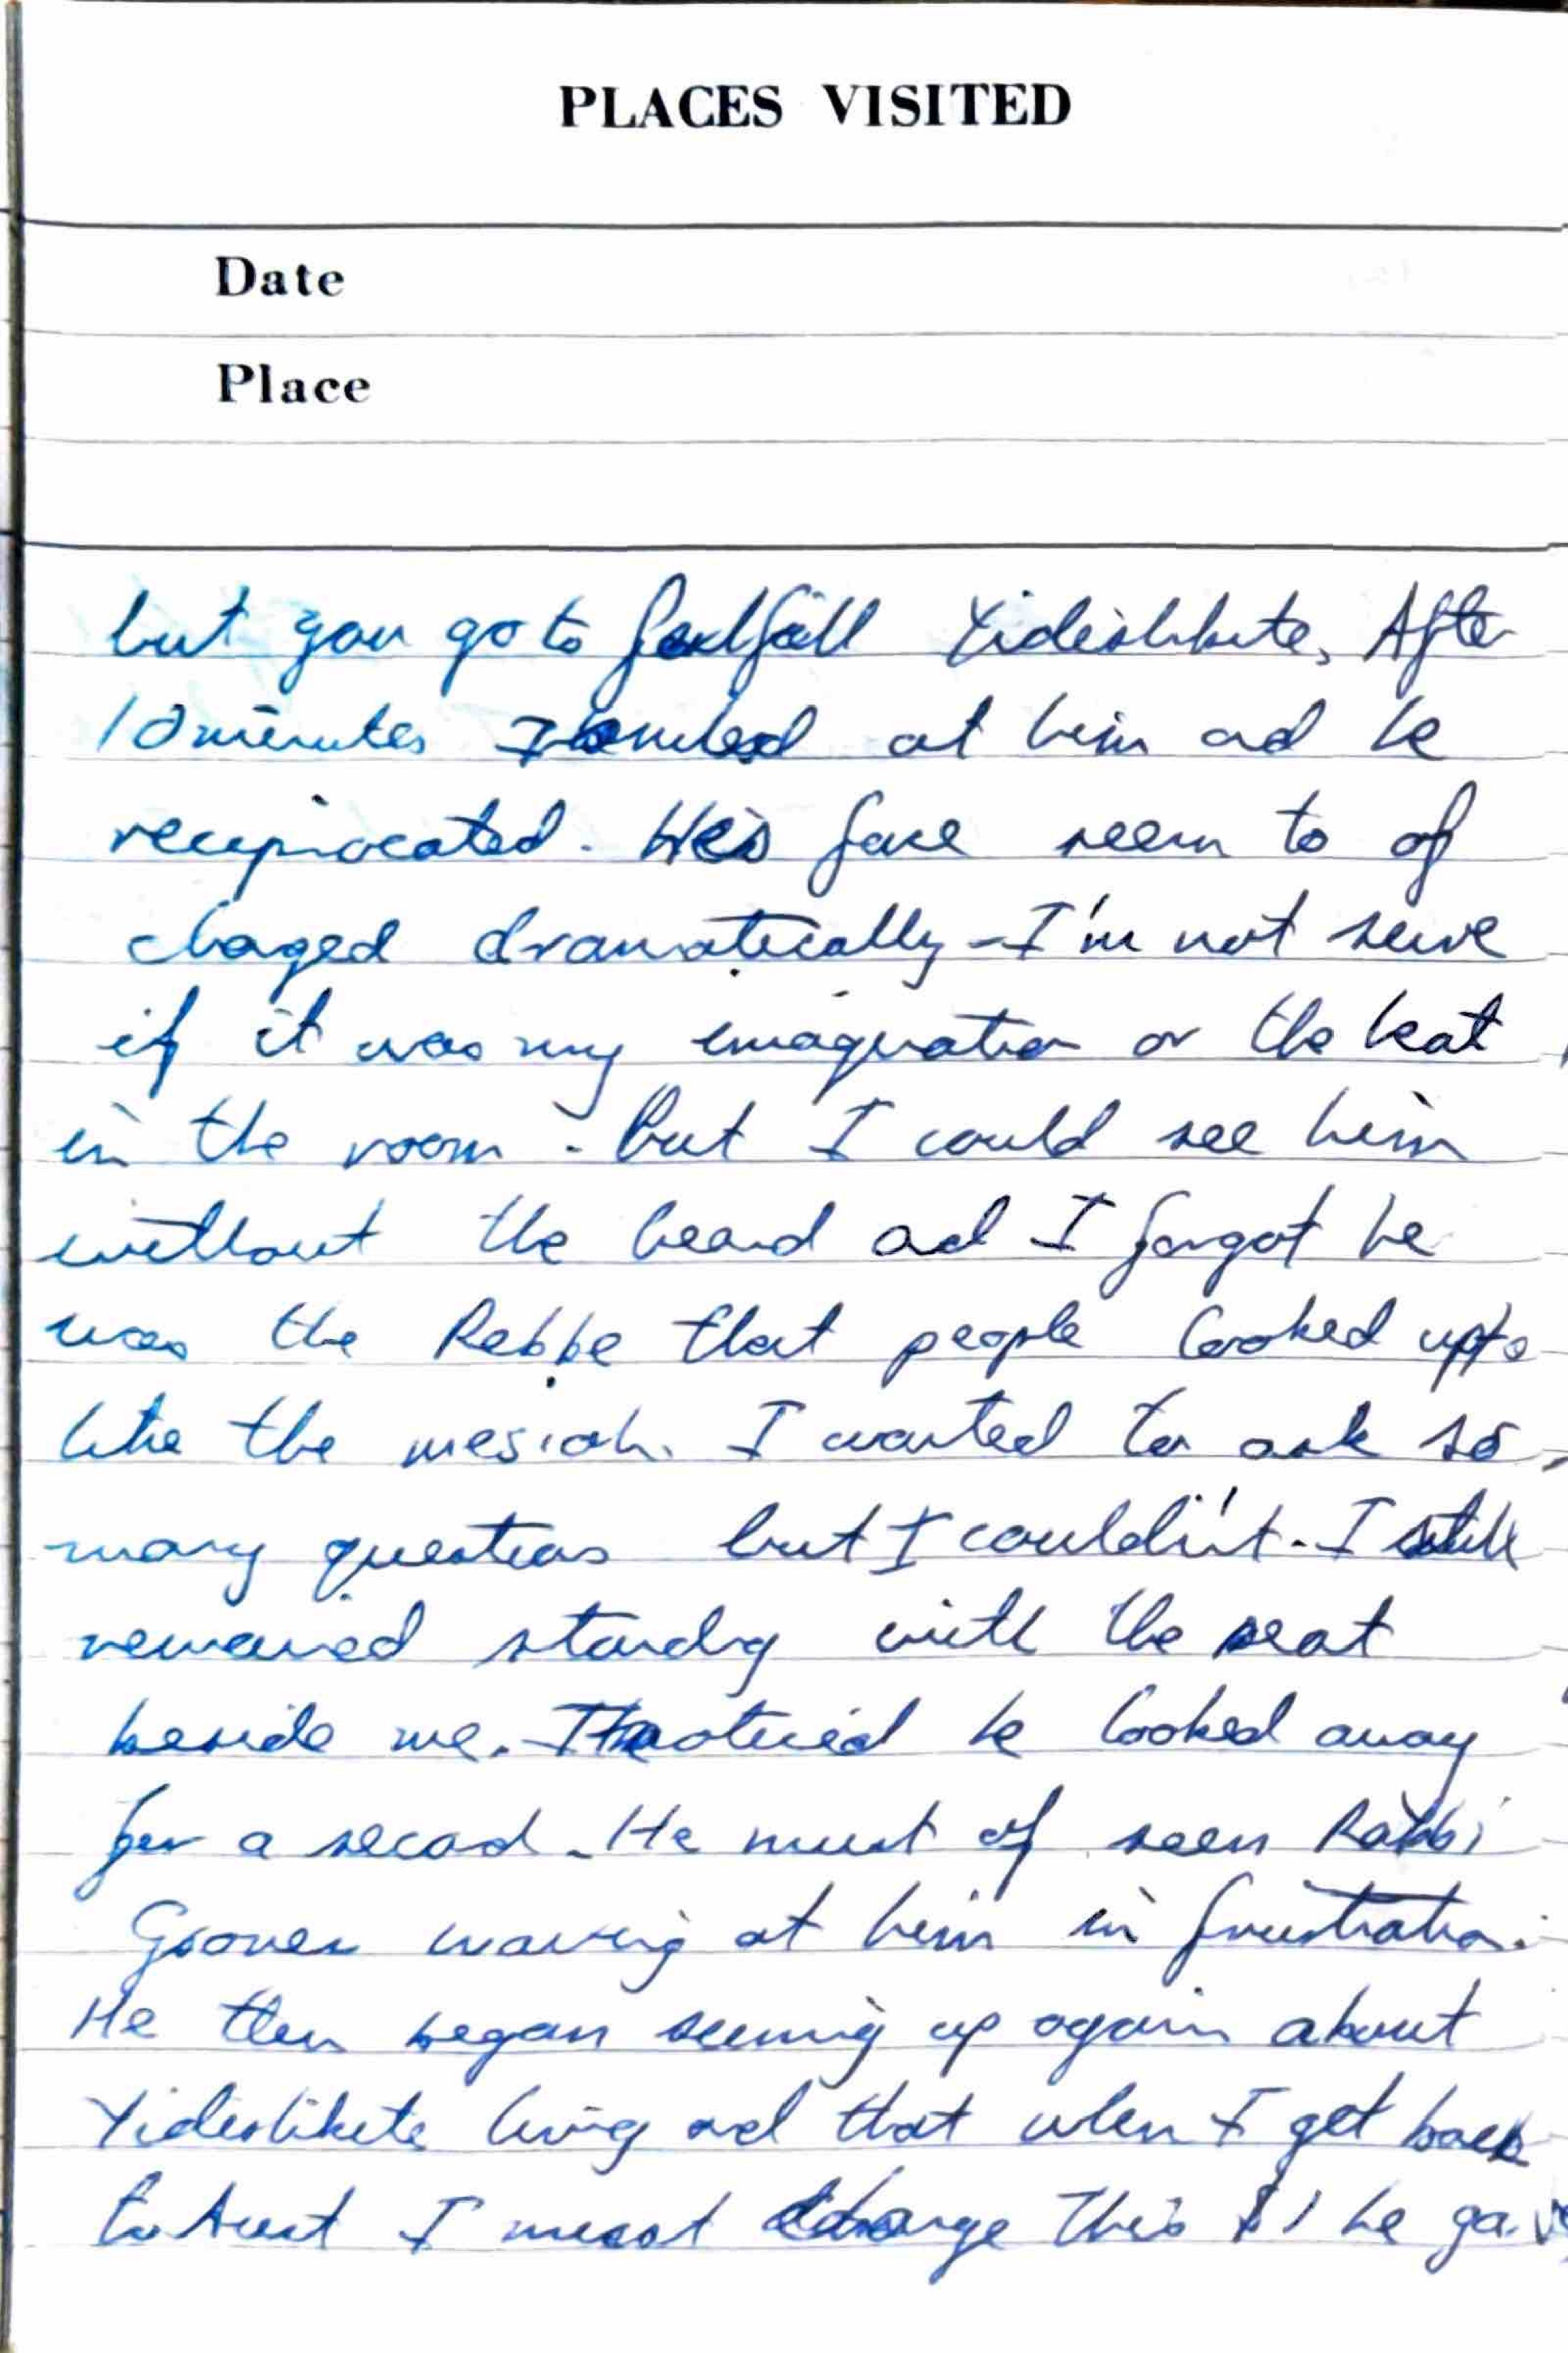 PLACES VISITED
Date
Place
but you go to fullfill Yidishkite. After
10 minutes I smiled at him ad he
recuprocated. His face seem to of
chaged dramatically - I'm not sure
if it was my imagnation or the heat
in the room - But I could see him
without the beard ad I forgot he
was the Rebbe that people looked upto
like the mesiah. I wanted to ask so
many questions but I couldn't. I still
remained standg with the seat
beside me. I noticed he looked away
for a secad. He must of seen Rabbi
Groner waving at him in frustration.
He then began summing up again about
Yideshkite living ad that when I get back
to Aust I must change this $1 he gave